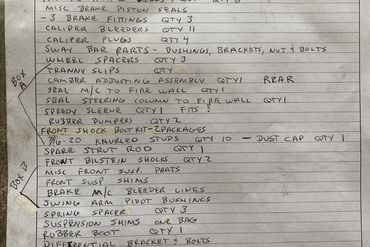 MISC BRAKE PISTON SEALS
-3 BRAKE FITTINGS QTY 3
CALIPER BLEEDERS QTY 11
CALIPER PLUGS QTY 4
SWAY BAR PARTS - BUSHINGS, BRACKETS, NUT & BOLTS
WHEEL SPACERS QTY 3
TRANNY SLIPS QTY
CAMBER ADJUSTING ASSEMBLY QTY 1 REAR
SEAL M/C TO FIRE WALL QTY 1
SEAL STEERING COLUMN TO FIRE WALL QTY 1
SPEEDY SLEEVE QTY 1 FITS ?
RUBBER BUMPERS QTY 2
FRONT SHOCK BOLT KIT - 2 PACKAGES
7/16-20 KNURLED STUDS QTY 10 - DUST CAP QTY 1
SPARE STRUT ROD QTY 1
FRONT BILSTEIN SHOCKS QTY 2
MISC FRONT SUSP. PARTS
FRONT SUSP SHIMS
BRAKE M/C BLEEDER LINES
SWING ARM PIVOT BUSHINGS
SPRING SPACER QTY 3
SUSPENSION SHIMS ONE BAG
RUBBER BOOT QTY 1
DIFFERENTIAL BRACKET & BOLTS
BOX A
BOX B